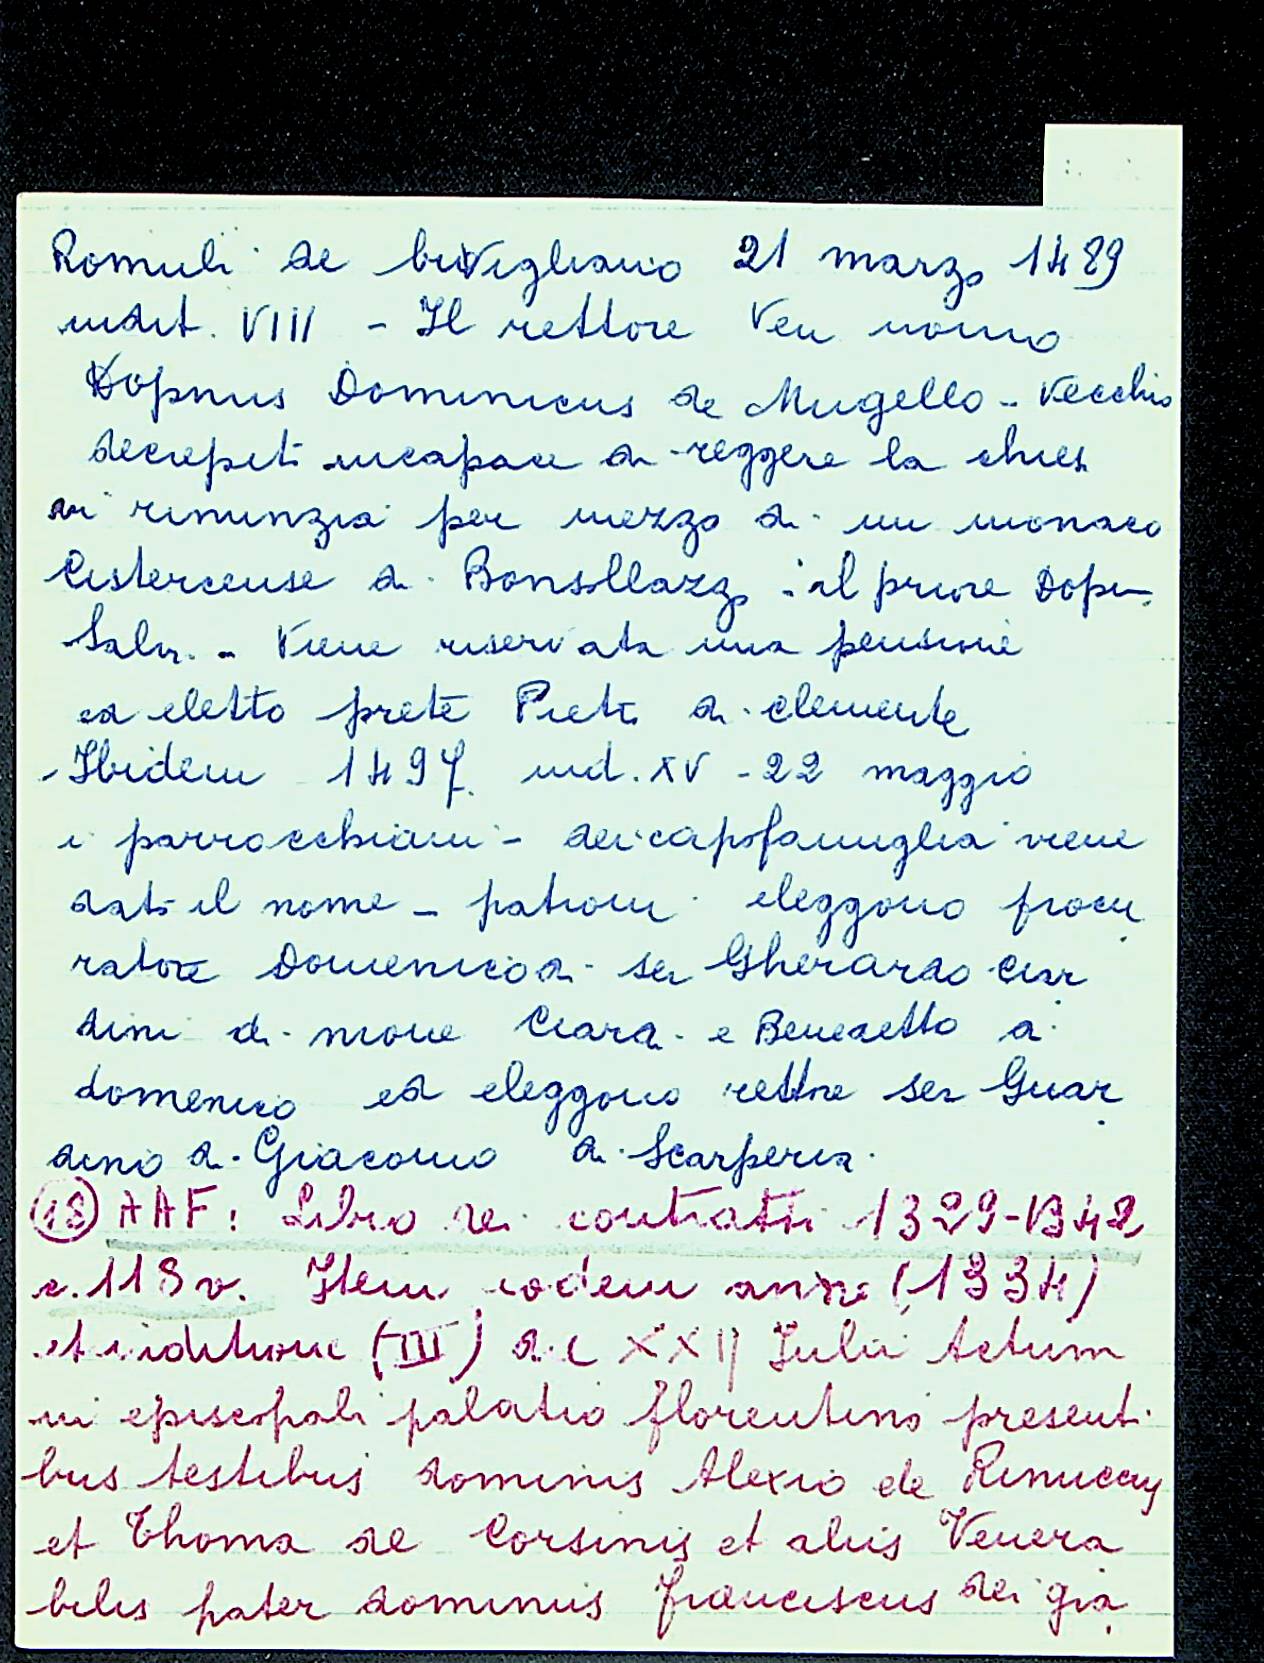 Romuli de bivigliano 21 marzo 1489
indit. VIII - Il rettore Ven uomo
Dopnus Dominicus de Mugello - Vecchio
decrepito incapace di reggere la chiesa
vi rinunzia per mezzo di un monaco
Cistercense di Bonsollazzo il priore
Viene riservata una pensione
ed eletto prete Pietro di clemente
- Ibidem 1497 ind. XV - 22 maggio
i parrocchiani - dei capifamiglia viene
dato il nome - patroni eleggono procu
ratore Domenico di ser Gherardo Ciar
dini di e Benedetto di
domenico ed eleggono rettore ser Guar
dino di Giacomo di Scarperia.
(18) AAF: Libro dei contratti 1329-1342
c. 118 v. Item eodem anno (1334)
et inditione (III) die XXII Iulii Actum
in episcopali palatio florentino presenti
bus testibus dominis Alexio de Rinuccii
et Thoma de Corsinis et aliis Venera
bilis pater dominus franciscus dei gra